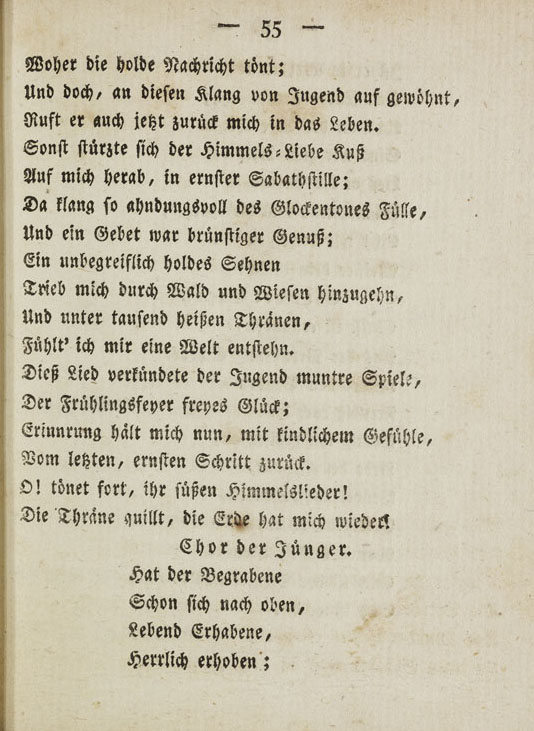 — 55 —
Woher die holde Nachricht tönt;
Und doch, an diesen Klang von Jugend auf gewöhnt,
Ruft er auch jetzt zurück mich in das Leben.
Sonst stürzte sich der Himmels-Liebe Kuß
Auf mich herab, in ernster Sabathstille;
Da klang so ahndungsvoll des Glockentones Fülle,
Und ein Gebet war brünstiger Genuß;
Ein unbegreiflich holdes Sehnen
Trieb mich durch Wald und Wiesen hinzugehn,
Und unter tausend heißen Thränen,
Fühlt' ich mir eine Welt entstehn.
Dieß Lied verkündete der Jugend muntre Spiele,
Der Frühlingsfeyer freyes Glück;
Erinnrung hält mich nun, mit kindlichem Gefühle,
Vom letzten, ernsten Schritt zurück.
O! tönet fort, ihr süßen Himmelslieder!
Die Thräne quillt, die Erde hat mich wieder!
Chor der Jünger.
Hat der Begrabene
Schon sich nach oben,
Lebend Erhabene,
Herrlich erhoben;